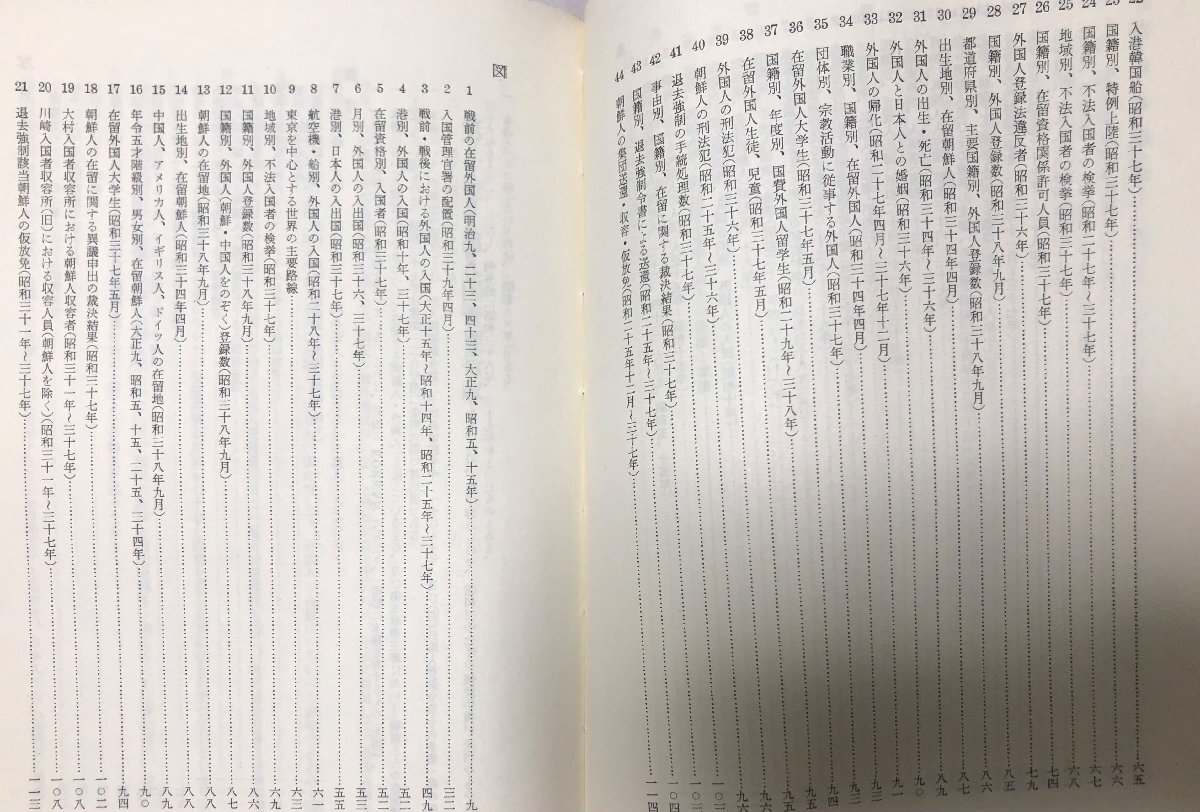 22 入港韓国船(昭和三十七年)……六五
23 国籍別、特例上陸(昭和三十七年)……六六
24 国籍別、不法入国者の検挙(昭和二十七年～三十七年)……六七
25 地域別、不法入国者の検挙(昭和三十七年)……六八
26 国籍別、在留資格関係許可人員(昭和三十七年)……七四
27 外国人登録法違反者(昭和三十六年)……七九
28 国籍別、外国人登録数(昭和三十八年九月)……八五
29 都道府県別、主要国籍別、外国人登録数(昭和三十八年九月)……八六
30 出生地別、在留朝鮮人(昭和三十四年四月)……八七
31 外国人の出生・死亡(昭和三十四年～三十六年)……九〇
32 外国人と日本人との婚姻(昭和三十六年)……九一
33 外国人の帰化(昭和二十七年四月～三十七年十二月)……九二
34 職業別、国籍別、在留外国人(昭和三十四年四月)……九三
35 団体別、宗教活動に従事する外国人(昭和三十七年)
36 在留外国人大学生(昭和三十七年五月)
37 国籍別、年度別、国費外国人留学生(昭和二十九年～三十八年)
38 在留外国人生徒、児童(昭和三十七年五月)
39 外国人の刑法犯(昭和三十六年)
40 朝鮮人の刑法犯(昭和二十五年～三十六年)
41 退去強制の手続処理数(昭和三十七年)
42 事由別、国籍別、在留に関する裁決結果(昭和三十七年)
43 国籍別、退去強制令書による送還(昭和二十五年～三十七年)……一〇四
44 朝鮮人の集団送還・収容・仮放免(昭和二十五年十二月～三十七年)……一一四
図
1 戦前の在留外国人(明治九、二十三、四十三、大正九、昭和五、十五年)……九
2 入国管理官署の配置(昭和三十九年四月)……三二
3 戦前・戦後における外国人の入国(大正十五年～昭和十四年、昭和二十五年～三十七年)……四九
4 港別、外国人の入国(昭和十年、三十七年)
5 在留資格別、入国者(昭和三十七年)
6 月別、外国人の入出国(昭和三十六、三十七年)……五五
7 港別、日本人の入出国(昭和三十七年)……五五
8 航空機・船別、外国人の入国(昭和二十八年～三十七年)……六一
9 東京を中心とする世界の主要路線……六三
10 地域別、不法入国者の検挙(昭和三十七年)
11 国籍別、外国人登録数(昭和三十八年九月)……八六
12 国籍別、外国人(朝鮮・中国人をのぞく)登録数(昭和三十八年九月)……八七
13 朝鮮人の在留地(昭和三十八年九月)……八八
14 出生地別、在留朝鮮人(昭和三十四年四月)……八八
15 中国人、アメリカ人、イギリス人、ドイツ人の在留地(昭和三十八年九月)……八九
16 年令五才階級別、男女別、在留朝鮮人(大正九、昭和五、十五、二十五、三十四年)……九〇
17 在留外国人大学生(昭和三十七年五月)……九四
18 朝鮮人の在留に関する異議申出の裁決結果(昭和三十七年)……一〇二
19 大村入国者収容所における朝鮮人収容者(昭和三十一年～三十七年)……一〇八
20 川崎入国者収容所(旧)における収容人員(朝鮮人を除く)(昭和三十一年～三十七年)……一〇八
21 退去強制該当朝鮮人の仮放免(昭和三十一年～三十七年)……一一三